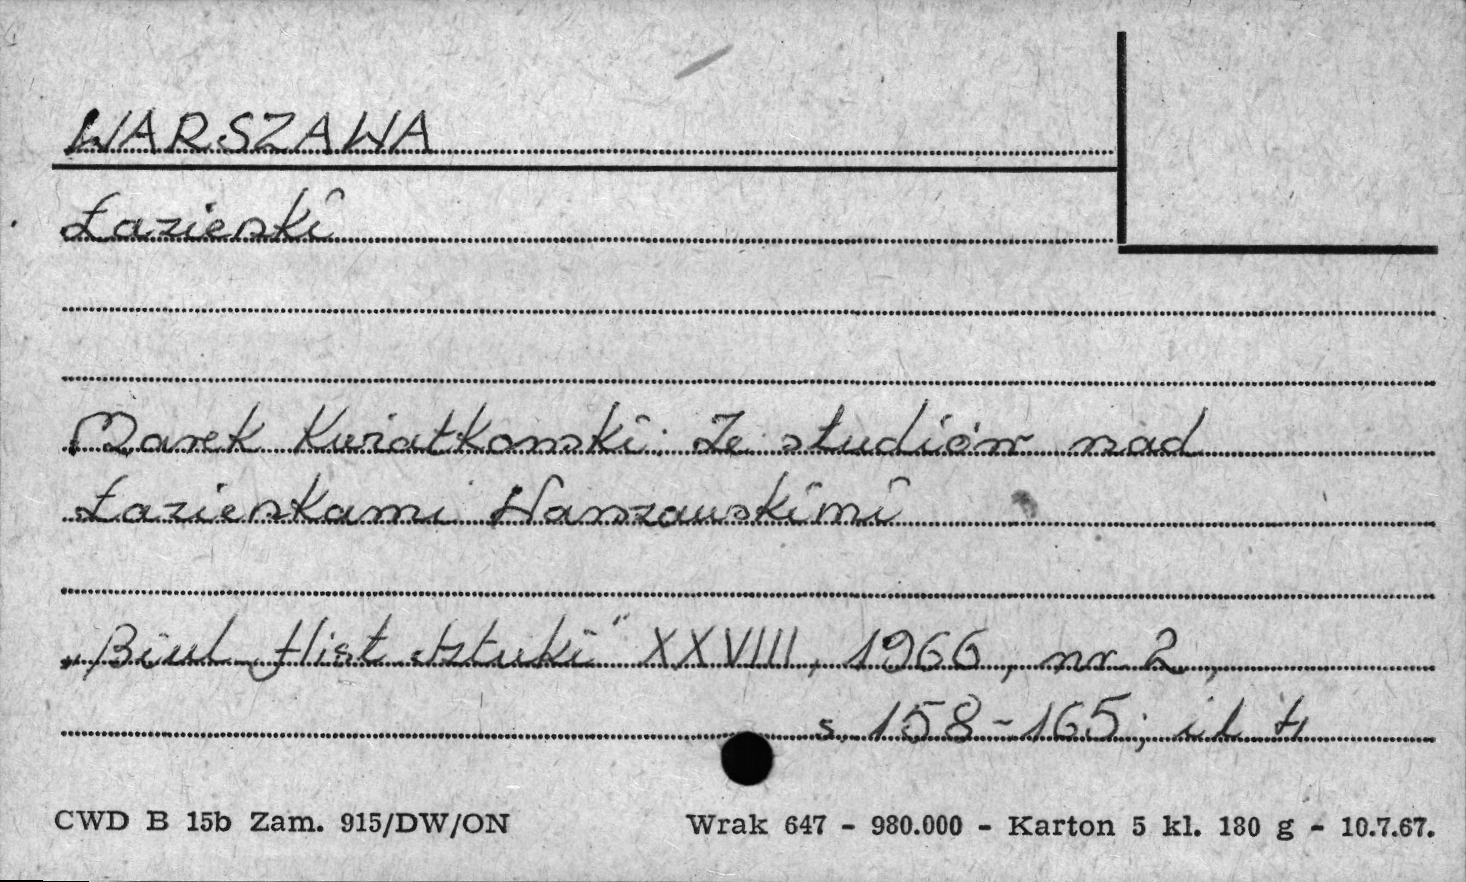 WARSZAWA
Łazienki
Marek Kwiatkowski: Ze studiów nad
Łazienkami Warszawskimi
„Biul. Hist. Sztuki" XXVIII, 1966, nr 2,
s. 158-165; il 4
CWD B 15b Zam. 915/DW/ON Wrak 647 - 980.000 - Karton 5 kl. 180 g - 10.7.67.